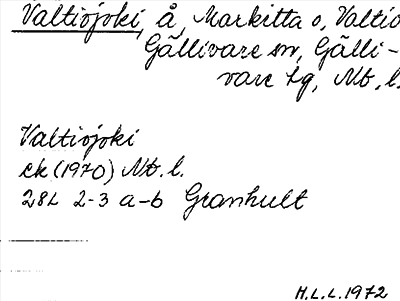 Valtiojoki, å, Markitta o, Valtio
Gällivare sn, Gälli-
vare tg, Nb. l.
Valtiojoki
ek (1970) Nb. l.
28L 2-3 a-b Granhult
H.L.L. 1972